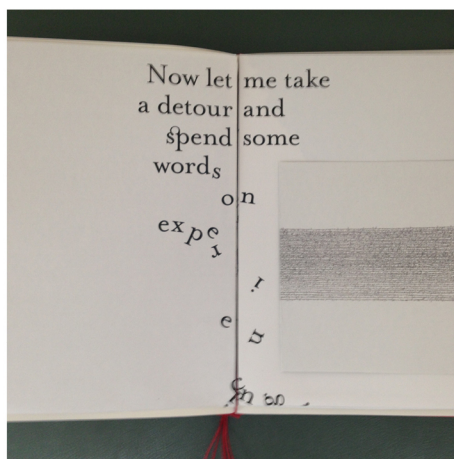 Now let me take
a detour and
spend some
words
on
exper
i
en